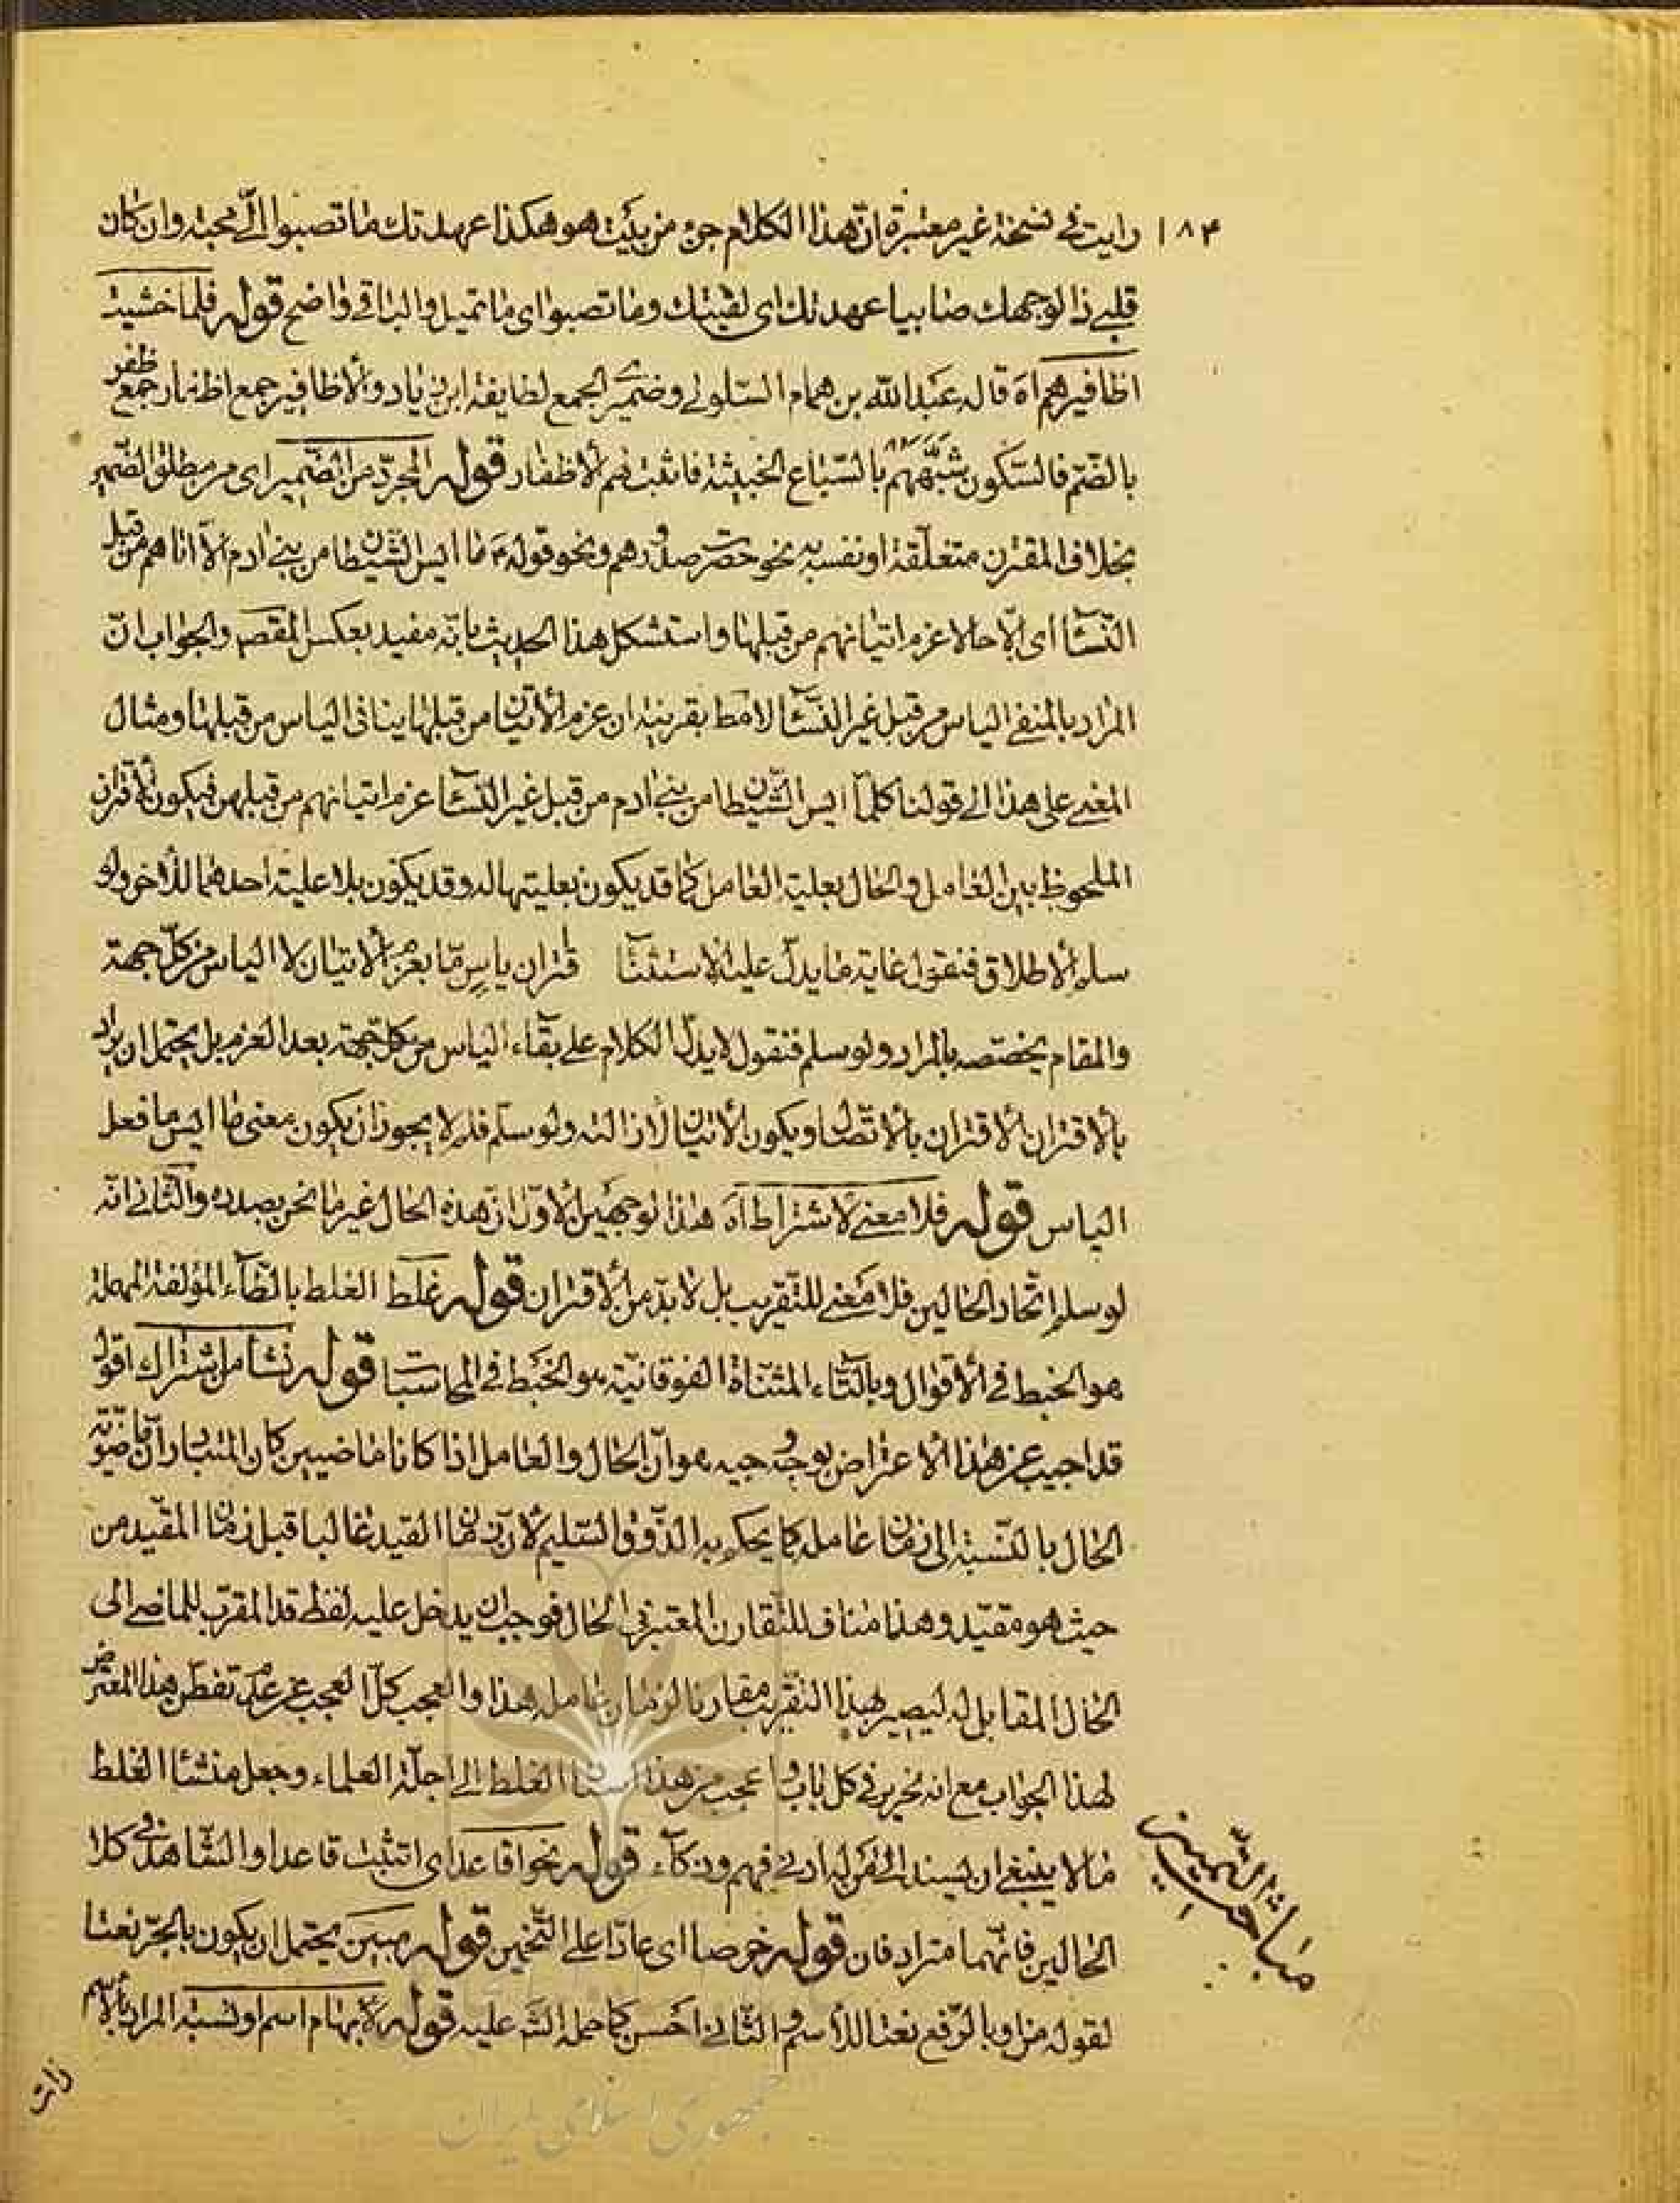 ١٨٣
رايت في نسخة غير معتبرة ان هذا الكلام جزء من بيت هو هكذا عهدتك ما تصبوا الى محبة وان كان
قلبي ذا لوجهك صابيا عهدتك اى لقيتك وما تصبوا اى ما تميل والباقي واضح قوله فلما خشيت
اظافيرهم اه قاله عبد الله بن همام السلولي وضمير الجمع لطايفة ابن زياد والاظافير جمع اظفار جمع ظفر
بالضم فالسكون شبههم بالسباع الخبيثة فاثبت لهم الاظفار قوله المجرد من الضمير اى من مطلق الضمير
بخلاف المقترن متعلقة او نفسه به نحو حصرت صدورهم ونحو قوله ما ايس الشيطان من بني ادم الا اتاهم من قبل
النسآ اى الا حالا عزم اتيانهم من قبلها واستشكل هذا الحديث بانه مفيد بعكس المقصد والجواب ان
المراد بالمنفي الياس من قبل غير النسآ لا مط بقرينة ان عزم الاتيان من قبلها ينافى الياس من قبلها ومثال
المعنى على هذا الى قولنا كلما ايس الشيطان من بني ادم من قبل غير النسآ عزم اتيانهم من قبلهن فيكون الاقتران
الملحوظ بين العامل والحال بعلية العامل كما قد يكون بعليتها له وقد يكون بلا علية احدهما للاخر ولو
سلم الاطلاق فنقول غاية ما يدل عليه الاستثنآ قتران ياس ما بعزم الاتيان لا الياس من كل جهة
والمقام يخصصه بالمراد ولو سلم فنقول لا يدل الكلام على بقاء الياس من كل جهة بعد العزم بل يحتمل ان يراد
بالاقتران الاقتران بالاتصال ويكون الاتيان لازالته ولو سلم فلم لا يجوز ان يكون معنى ما ايس ما فعل
الياس قوله فلا معنى لاشتراط اه هذا لوجهين الاول ان هذه الحال غير ما نحن بصدده والثاني انه
لو سلم اتحاد الحالين فلا معنى للتقريب بل لا بد من الاقتران قوله غلط الغلط بالطاء المؤلفة المهملة
هو الخبط في الاقوال وبالتاء المثناة الفوقانية هو الخبط في المحاسبات قوله نشا من اشتراك اقول
قد اجيب عن هذا الاعتراض بوجوه وجيه هو ان الحال والعامل اذا كانا ماضيين كان المتبادر ان ماضوية
الحال بالنسبة الى زمان عامله كما يحكم به الذوق السليم لان زمان القيد غالبا قبل زمان المقيد من
حيث هو مقيد وهذا مناف للتقارن المعتبر في الحال فوجب ان يدخل عليه لفظ قد المقرب للماضي الى
الحال المقابل له ليصير بهذا التقريب مقارنا لزمان عامله هذا والعجب كل العجب عن عدم تفطن هذا المعترض
لهذا الجواب مع انه نحرير في كل باب واعجب من هذا اسناد الغلط الى اجلة العلماء وجعل منشا الغلط
ما لا ينبغي ان يسند الى من له ادنى فهم وذكاء قوله نحو اقاعدا اى اتثبت قاعدا والشاهد في كلا
الحالين فانهما مترادفان قوله خرصا اى عادا على التخمين قوله مبين يحتمل ان يكون بالجر نعتا
لقوله من او بالرفع نعتا للاسم والثاني احسن كما حمله الش عليه قوله لابهام اسم او نسبة المراد بالاسم
مباحث التميز
ذات
جمهوری اسلامی ایران